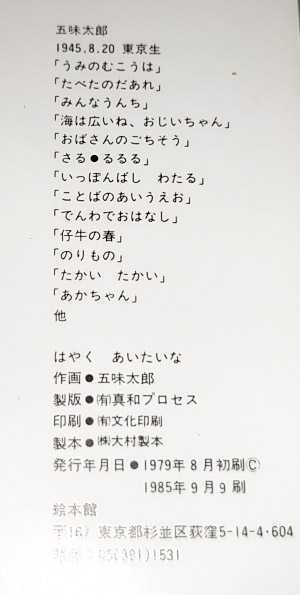 五味太郎
1945.8.20 東京生
「うみのむこうは」
「たべたのだあれ」
「みんなうんち」
「海は広いね、おじいちゃん」
「おばさんのごちそう」
「さる●るるる」
「いっぽんばし　わたる」
「ことばのあいうえお」
「でんわでおはなし」
「仔牛の春」
「のりもの」
「たかい　たかい」
「あかちゃん」
他
はやく　あいたいな
作画●五味太郎
製版●㈲真和プロセス
印刷●㈲文化印刷
製本●㈱大村製本
発行年月日●1979年8月初刷©
1985年9月9刷
絵本館
〒167 東京都杉並区荻窪5-14-4・604
1531